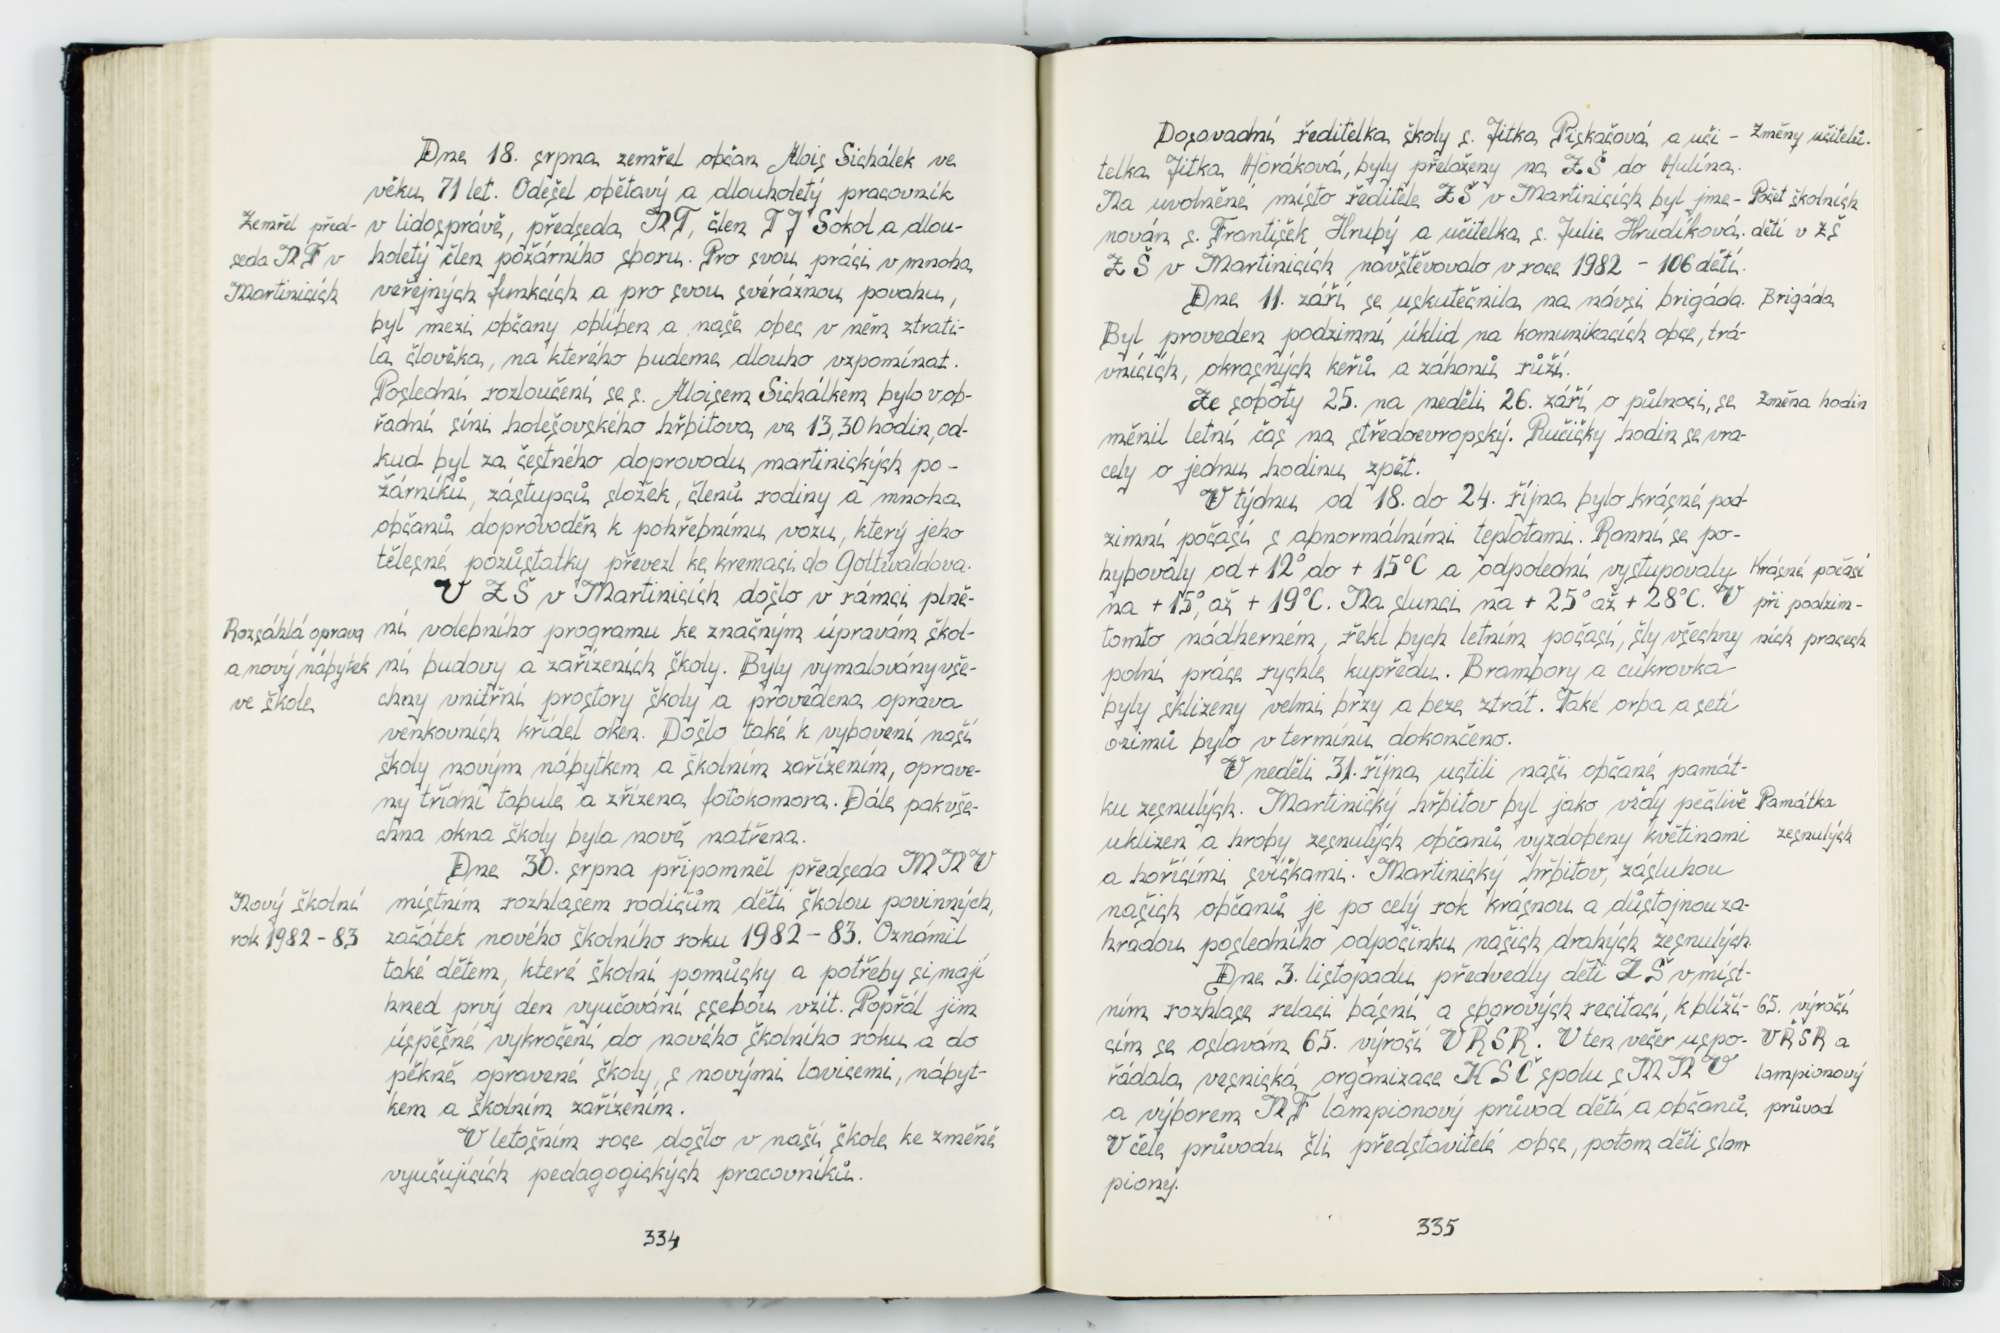 Dne 18. srpna zemřel občan Alois Sichálek ve
věku 71 let. Odešel obětavý a dlouholetý pracovník
Zemřel před- v lidosprávě, předseda NF, člen TJ Sokol a dlou-
seda NF v holetý člen požárního sboru. Pro svou práci v mnoha
Martinicích veřejných funkcích a pro svou svéráznou povahu,
byl mezi občany oblíben a naše obec v něm ztrati-
la člověka, na kterého budeme dlouho vzpomínat.
Poslední rozloučení se s. Aloisem Sichálkem bylo v ob-
řadní síni holešovského hřbitova ve 13,30 hodin, od-
kud byl za čestného doprovodu martinických po-
žárníků, zástupců složek, členů rodiny a mnoha
občanů doprovoděn k pohřebnímu vozu, který jeho
tělesné pozůstatky převezl ke kremaci do Gottwaldova.
V ZŠ v Martinicích došlo v rámci plně-
Rozsáhlá oprava ní volebního programu ke značným úpravám škol-
a nový nábytek ní budovy a zařízeních školy. Byly vymalovány vše-
ve škole chny vnitřní prostory školy a provedena oprava
venkovních křídel oken. Došlo také k vybavení naší
školy novým nábytkem a školním zařízením, oprave-
ny třídní tabule a zřízena fotokomora. Dále pak vše-
chna okna školy byla nově natřena.
Dne 30. srpna připomněl předseda MNV
Nový školní místním rozhlasem rodičům dětí školou povinných,
rok 1982 - 83 začátek nového školního roku 1982 - 83. Oznámil
také dětem, které školní pomůcky a potřeby si mají
hned prvý den vyučování ssebou vzít. Popřál jim
úspěšné vykročení do nového školního roku a do
pěkně opravené školy, s novými lavicemi, nábyt-
kem a školním zařízením.
V letošním roce došlo v naší škole ke změně
vyučujících pedagogických pracovníků.
334
Dosavadní ředitelka školy s. Jitka Piskačová a uči - Změny učitelů.
telka Jitka Horáková, byly přeloženy na ZŠ do Hulína.
Na uvolněné místo ředitele ZŠ v Martinicích byl jme- Počet školních
nován s. František Hrubý a učitelka s. Julie Hrudíková. dětí v ZŠ
ZŠ v Martinicích navštěvovalo v roce 1982 - 106 dětí.
Dne 11. září se uskutečnila na návsi brigáda. Brigáda
Byl proveden podzimní úklid na komunikacích obce, trá-
vnících, okrasných keřů a záhonů růží.
Ze soboty 25. na neděli 26. září o půlnoci, se Změna hodin
měnil letní čas na středoevropský. Ručičky hodin se vra-
cely o jednu hodinu zpět.
V týdnu od 18. do 24. října bylo krásné pod-
zimní počasí s abnormálními teplotami. Ranní se po-
hybovaly od + 12° do + 15°C a odpolední vystupovaly Krásné počasí
na + 15°, až + 19°C. Na slunci na + 25° až + 28°C. V při podzim-
tomto nádherném, řekl bych letním počasí, šly všechny ních pracech
polní práce rychle kupředu. Brambory a cukrovka
byly sklizeny velmi brzy a beze ztrát. Také orba a setí
ozimů bylo v termínu dokončeno.
V neděli 31. října uctili naši občané památ-
ku zesnulých. Martinický hřbitov byl jako vždy pečlivě Památka
uklizen a hroby zesnulých občanů vyzdobeny květinami zesnulých
a hořícími svíčkami. Martinický hřbitov, zásluhou
našich občanů je po celý rok krásnou a důstojnou za-
hradou posledního odpočinku našich drahých zesnulých.
Dne 3. listopadu předvedly děti ZŠ v míst-
ním rozhlase relaci básní a sborových recitací, k blíží- 65. výročí
cím se oslavám 65. výročí VŘSR. V ten večer uspo- VŘSR a
řádala vesnická organizace KSČ spolu s MNV lampionový
a výborem NF lampionový průvod dětí a občanů. průvod
V čele průvodu šli představitelé obce, potom děti s lam-
piony.
335